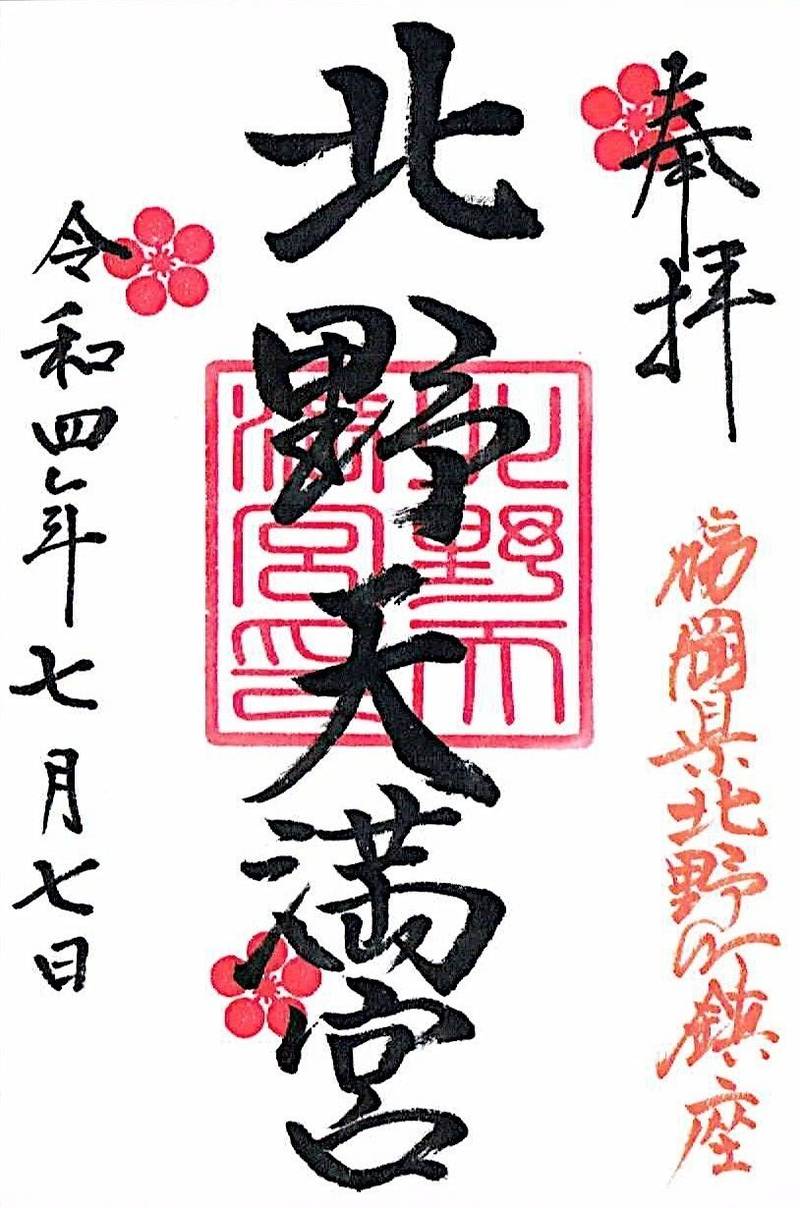 奉拝
福岡県北野町鎮座
北野天満宮
北野天満宮印
令和四年七月七日